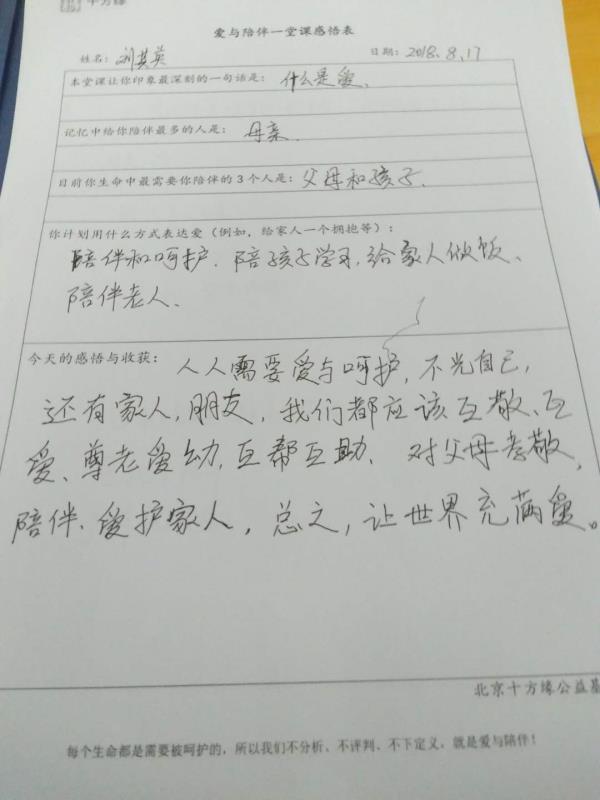 十方缘
爱与陪伴一堂课感悟表
姓名：刘其英 日期：2018.8.17
本堂课让你印象最深刻的一句话是：什么是爱、
记忆中给你陪伴最多的人是：母亲
目前你生命中最需要你陪伴的3个人是：父母和孩子.
你计划用什么方式表达爱（例如，给家人一个拥抱等）：
陪伴和呵护.陪孩子学习,给家人做饭、
陪伴老人、
今天的感悟与收获：人人需要爱与呵护,不光自己,
还有家人,朋友,我们都应该互敬、互
爱、尊老爱幼,互帮互助、对父母孝敬,
陪伴、爱护家人,总之,让世界充满爱。
北京十方缘公益基
每个生命都是需要被呵护的，所以我们不分析、不评判、不下定义，就是爱与陪伴！